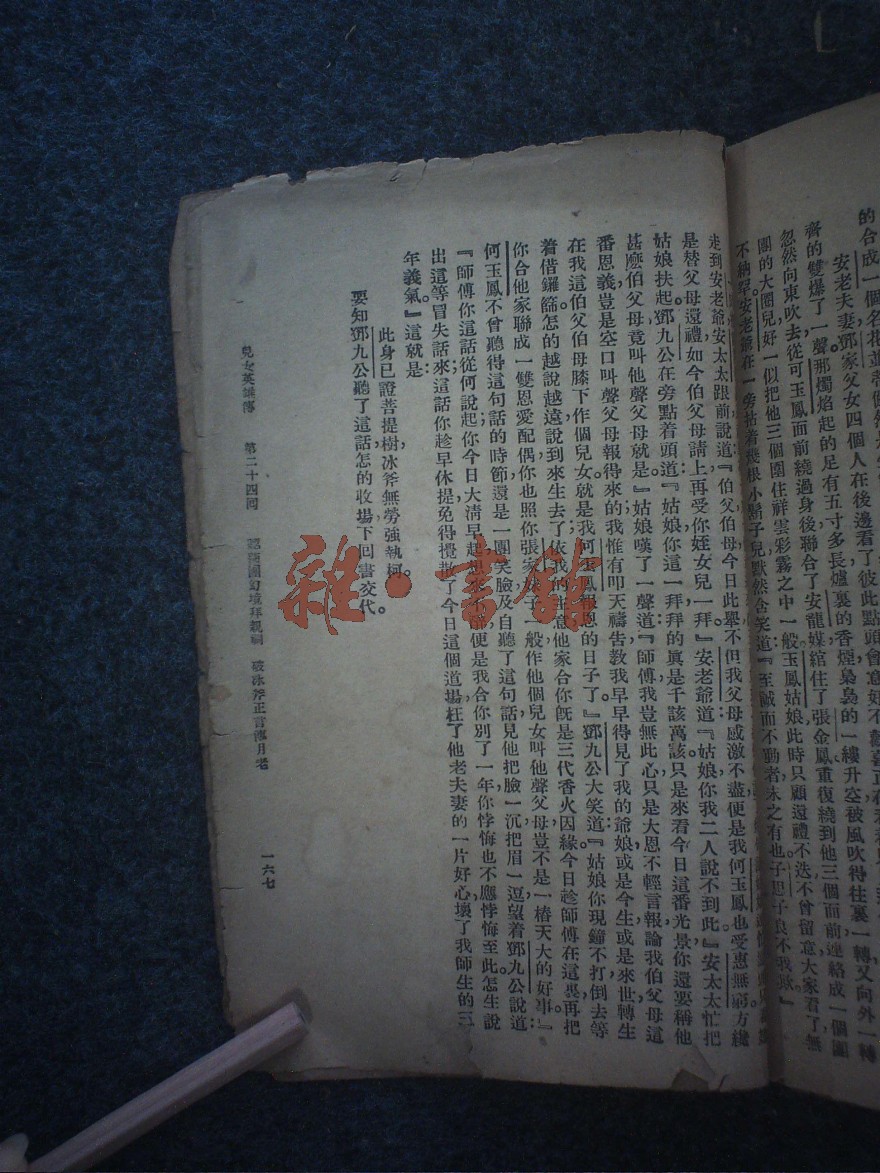 的合成一個名花並蒂
安老夫妻鄧家父女四個人在後邊看了彼此點頭會意好不歡喜正在
齊的雙爆了一聲那燭焰起的足有五寸多長爐裏的香煙裊裊的一縷升空被風吹得往裏一轉又向外一轉
忽然向東吹去從何玉鳳面前繞過身後聯合了安龍媒綰住了張金鳳重復繞到他三個面前連絡成一個團
團的大圈兒好一似把他三個團住祥雲彩霧之中一般玉鳳姑娘此時只顧還禮不迭不曾留意大家看了無
不納罕安老爺在一旁拈着幾根小鬍子兒默然含笑道『至誠而不動者未之有也子思子良不我欺』
走到安老爺安太太跟前說道『伯父伯母今日此舉不但我父母感激不盡便是我何玉鳳也受惠無窮方纔
是替父母還禮如今伯父母請上再受你姪女兒一拜』安老爺道『姑娘你我二人說不到此』安太太忙把
姑娘扶起鄧九公在旁點着頭道『姑娘你這一拜拜的眞是千該萬該只是來看今日這番光景你還要稱他
甚麼伯父母竟叫他聲父母就是』姑娘嘆了一聲道『師傅我豈無此心只是大恩不輕言報論我伯父母這
番恩義豈是空口叫聲父母報得來的我惟有叩天禱告教我早早得見了我的爺娘或是今生或是來世轉生
在我這伯父伯母膝下作個兒女就是我何玉鳳報恩的日子了。』鄧九公大笑道『姑娘你現鐘不打倒去等
着借鑼篩怎的越說越遠說到來生去了依我的主意他家合你既是三代香火因緣今日趁師傅在這裏再把
你合他家聯成一雙恩愛配偶你也照你張家妹子一般作他個兒女叫他聲父母豈不是一樁天大的好事』
何玉鳳不曾聽得這句話的時節還是一團笑臉及自聽了這句話見他把臉一沉把眉一逗望着鄧九公說道：
『師傅你這話從何說起你今日大清早起想來都便是我合你別了一年你悖悔也不應悖悔至此怎生說
出這等冒失話來這話你趁早休提免得攪散了今日這個道場枉了他老夫妻的一片好心壞了我師生的三
年義氣。』這就是
此身已證菩提樹冰斧無勞強執柯。
要知鄧九公聽了這話怎的收場下回書交代。
兒女英雄傳　第二十四回　認蒲團幻境拜親祠　破冰斧正言傳月老
一六七
雜·書館